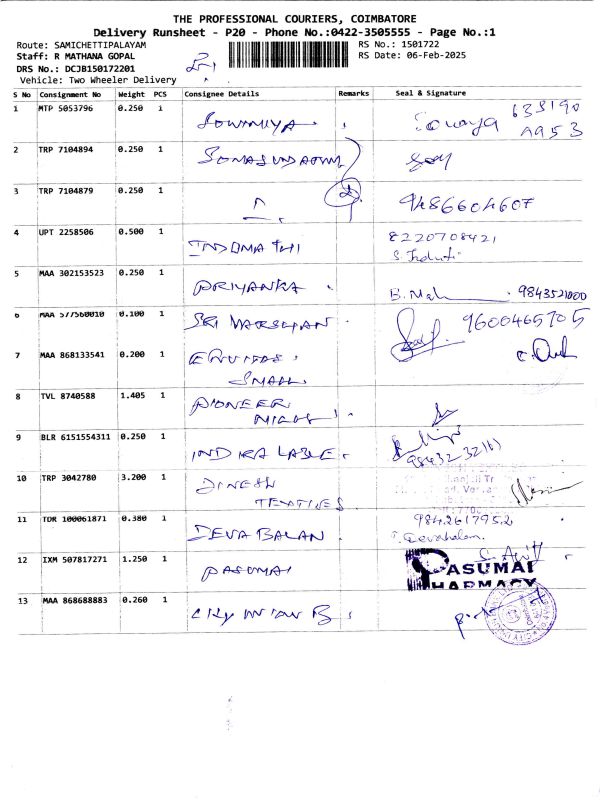 THE PROFESSIONAL COURIERS, COIMBATORE
Delivery Runsheet - P20 - Phone No.:0422-3505555 - Page No.:1
Route: SAMICHETTIPALAYAM RS No.: 1501722
Staff: R MATHANA GOPAL RS Date: 06-Feb-2025
DRS No.: DCJB150172201
Vehicle: Two Wheeler Delivery
S No Consignment No Weight PCS Consignee Details Remarks Seal & Signature
1 MTP 5053796 0.250 1 SOWMIYA Sowmya 638190
A953
2 TRP 7104894 0.250 1 SOMASUNDARAM
3 TRP 7104879 0.250 1 9486604607
4 UPT 2258506 0.500 1 INDUMATHI 8220708421
S. Indu
5 MAA 302153523 0.250 1 PRIYANKA 9843521000
6 MAA 577560010 0.100 1 SRI VARSHAN 9600465705
7 MAA 868133541 0.200 1
SMALL
8 TVL 8740588 1.405 1 PIONEER
MILLS
9 BLR 6151554311 0.250 1 INDIRA LABLE
10 TRP 3042780 3.200 1 DINESH
TEXTILES
11 TDR 100061871 0.380 1 DEVABALAN 9842617952
Devabalan
12 IXM 507817271 1.250 1 PASUMAI PASUMAI
PHARMACY
13 MAA 868688883 0.260 1 CITY UNION B